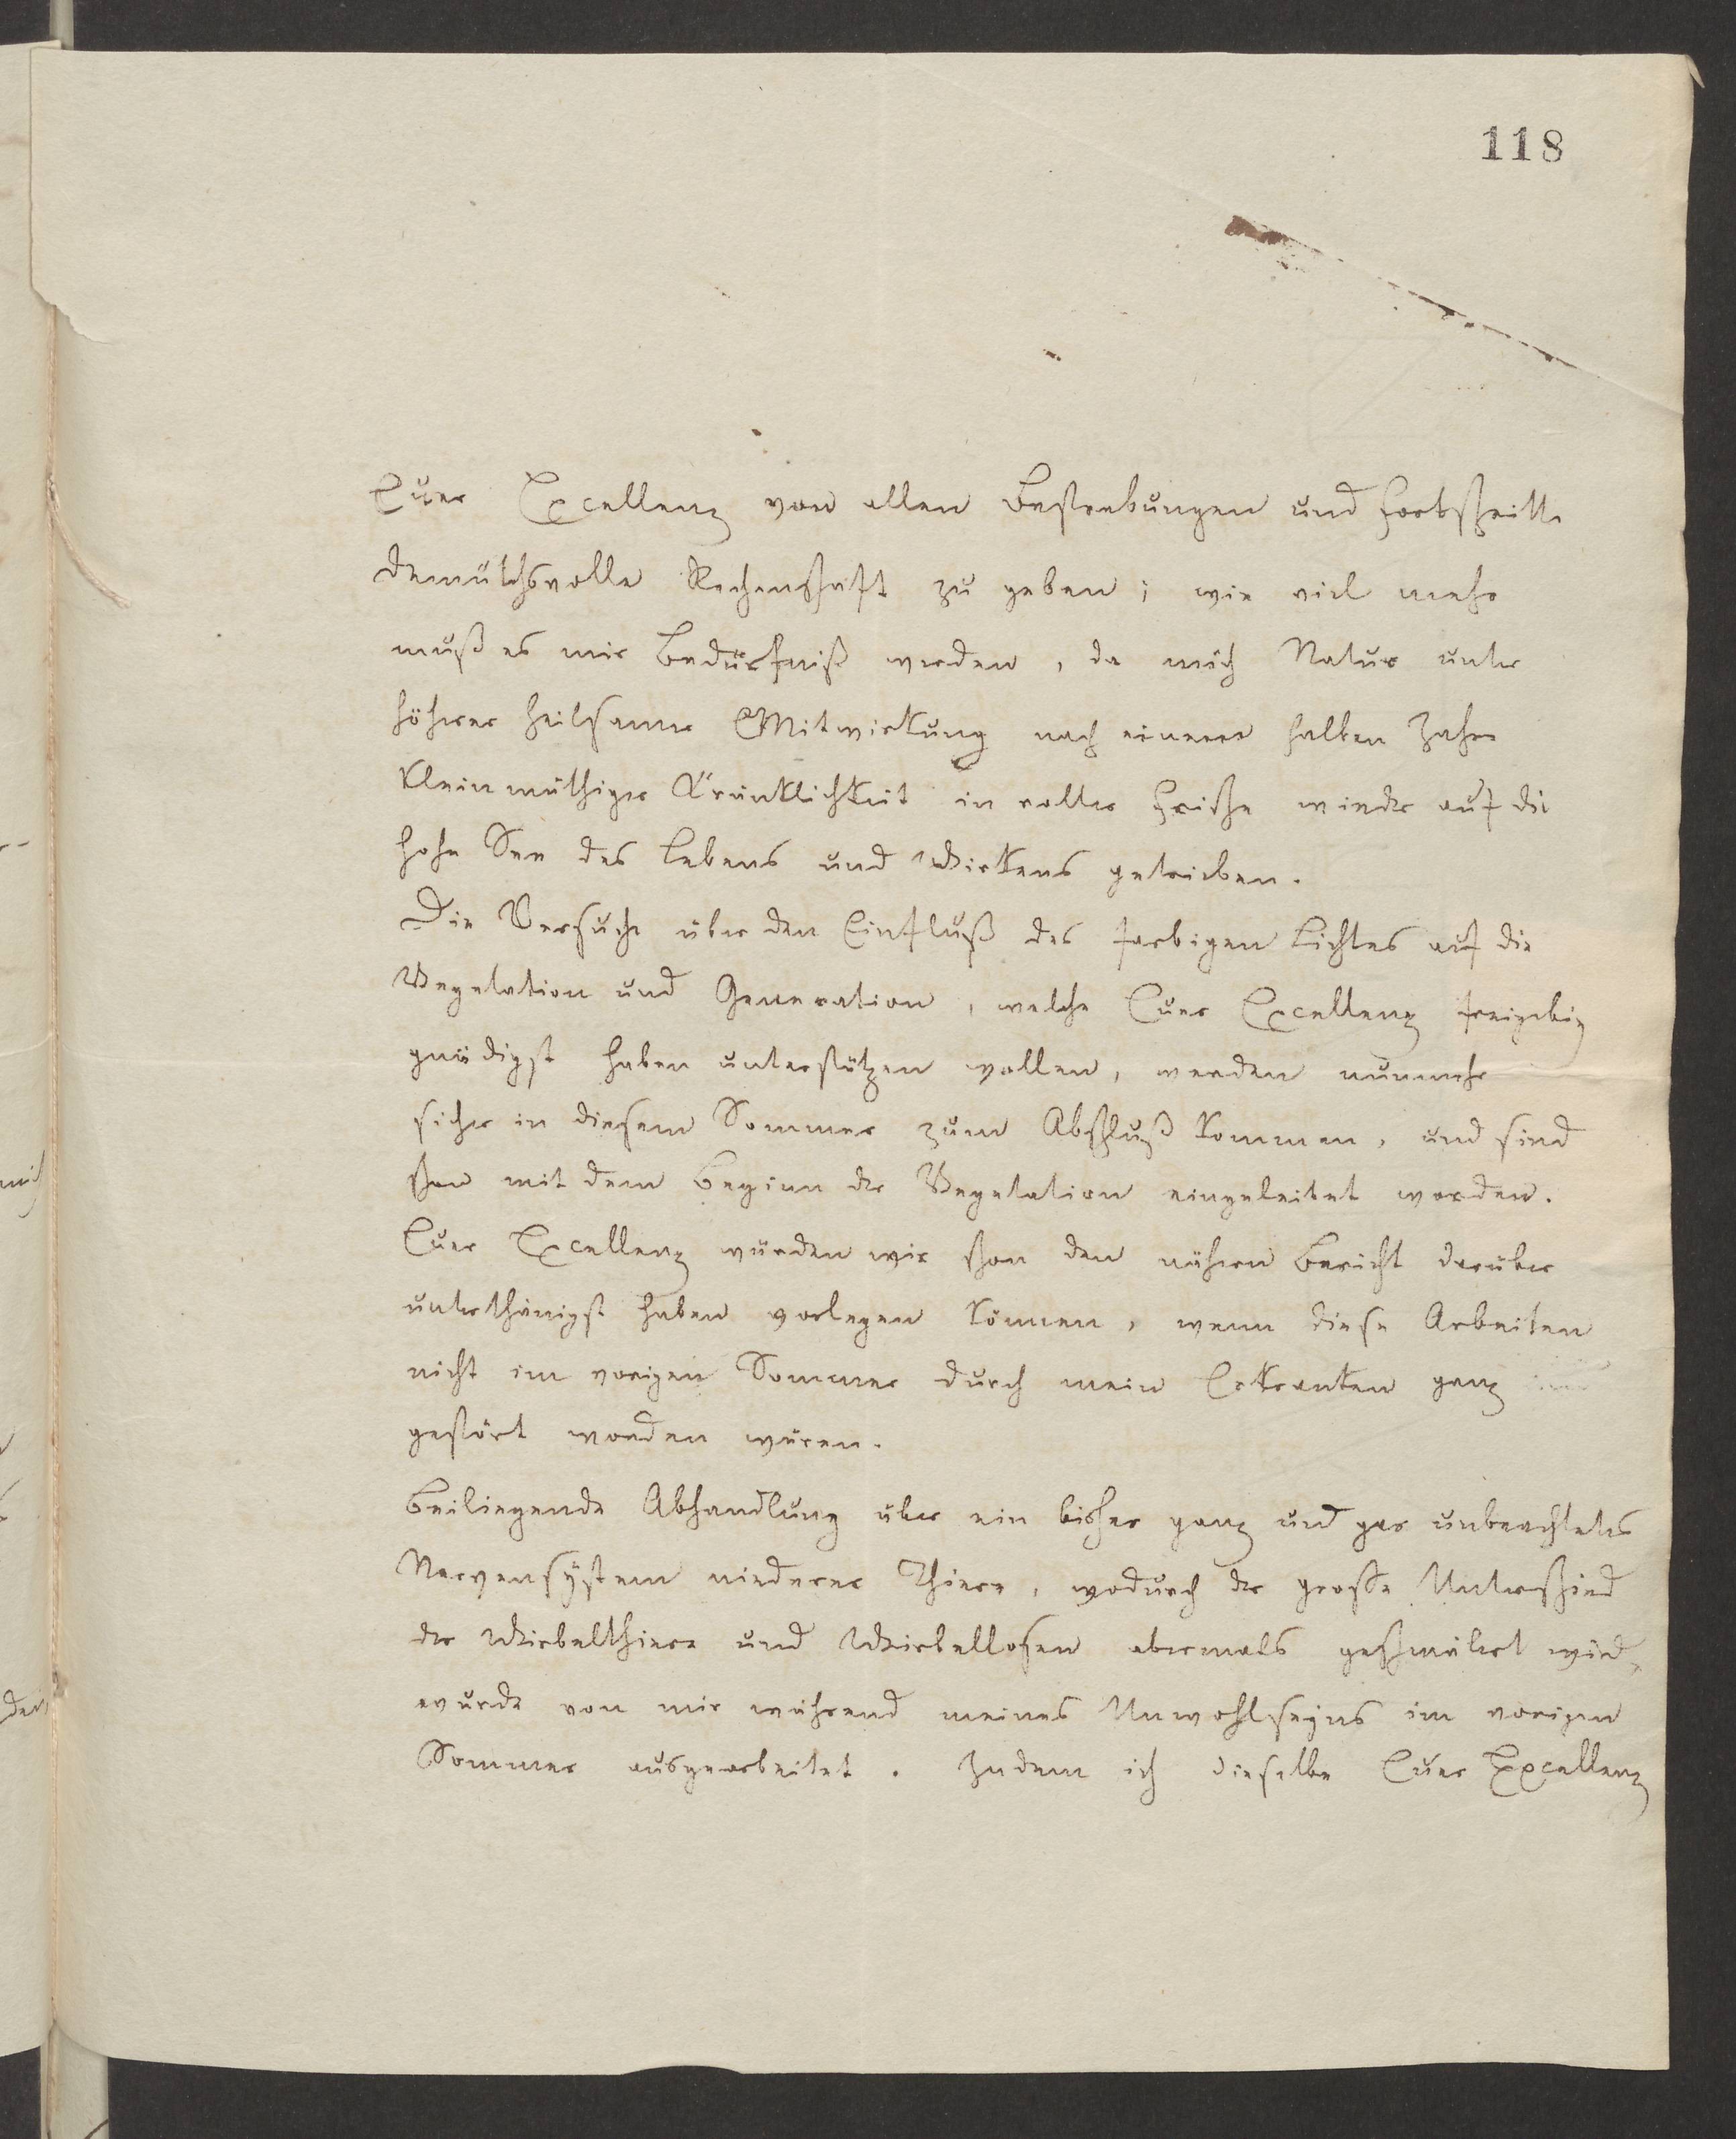 118
Euer Excellenz von allen Bestrebungen und Fortschritte
demüthsvolle Rechenschaft zu geben; wie viel mehr
muß es mir Bedürfniß werden, da mich Natur unter
höherer heilsamer Mitwirkung nach einem halben Jahre
kleinmüthiger Kränklichkeit in voller Frische wieder auf die
hohe See des Lebens und Wirkens getrieben.
Die Versuche über den Einfluß des farbigen Lichtes auf die
Vegetation und Generation, welche Euer Excellenz freigebig
gnädigst haben unterstützen wollen, werden nunmehr
sicher in diesem Sommer zum Abschluß kommen, und sind
schon mit dem Beginn der Vegetation eingeleitet worden.
Euer Excellenz würden wir schon den nähern Bericht darüber
unterthänigst haben vorlegen können, wenn diese Arbeiten
nicht im vorigen Sommer durch mein Erkranken ganz
gestört worden wären.
Beiliegende Abhandlung über ein bisher ganz und gar unbeachtetes
Nervensÿstem niederer Thiere, wodurch der große Unterschied
der Wirbelthiere und Wirbellosen abermals geschmälert wird,
wurde von mir während meines Unwohlseÿns im vorigen
Sommer ausgearbeitet. Indem ich dieselbe Euer Excellenz